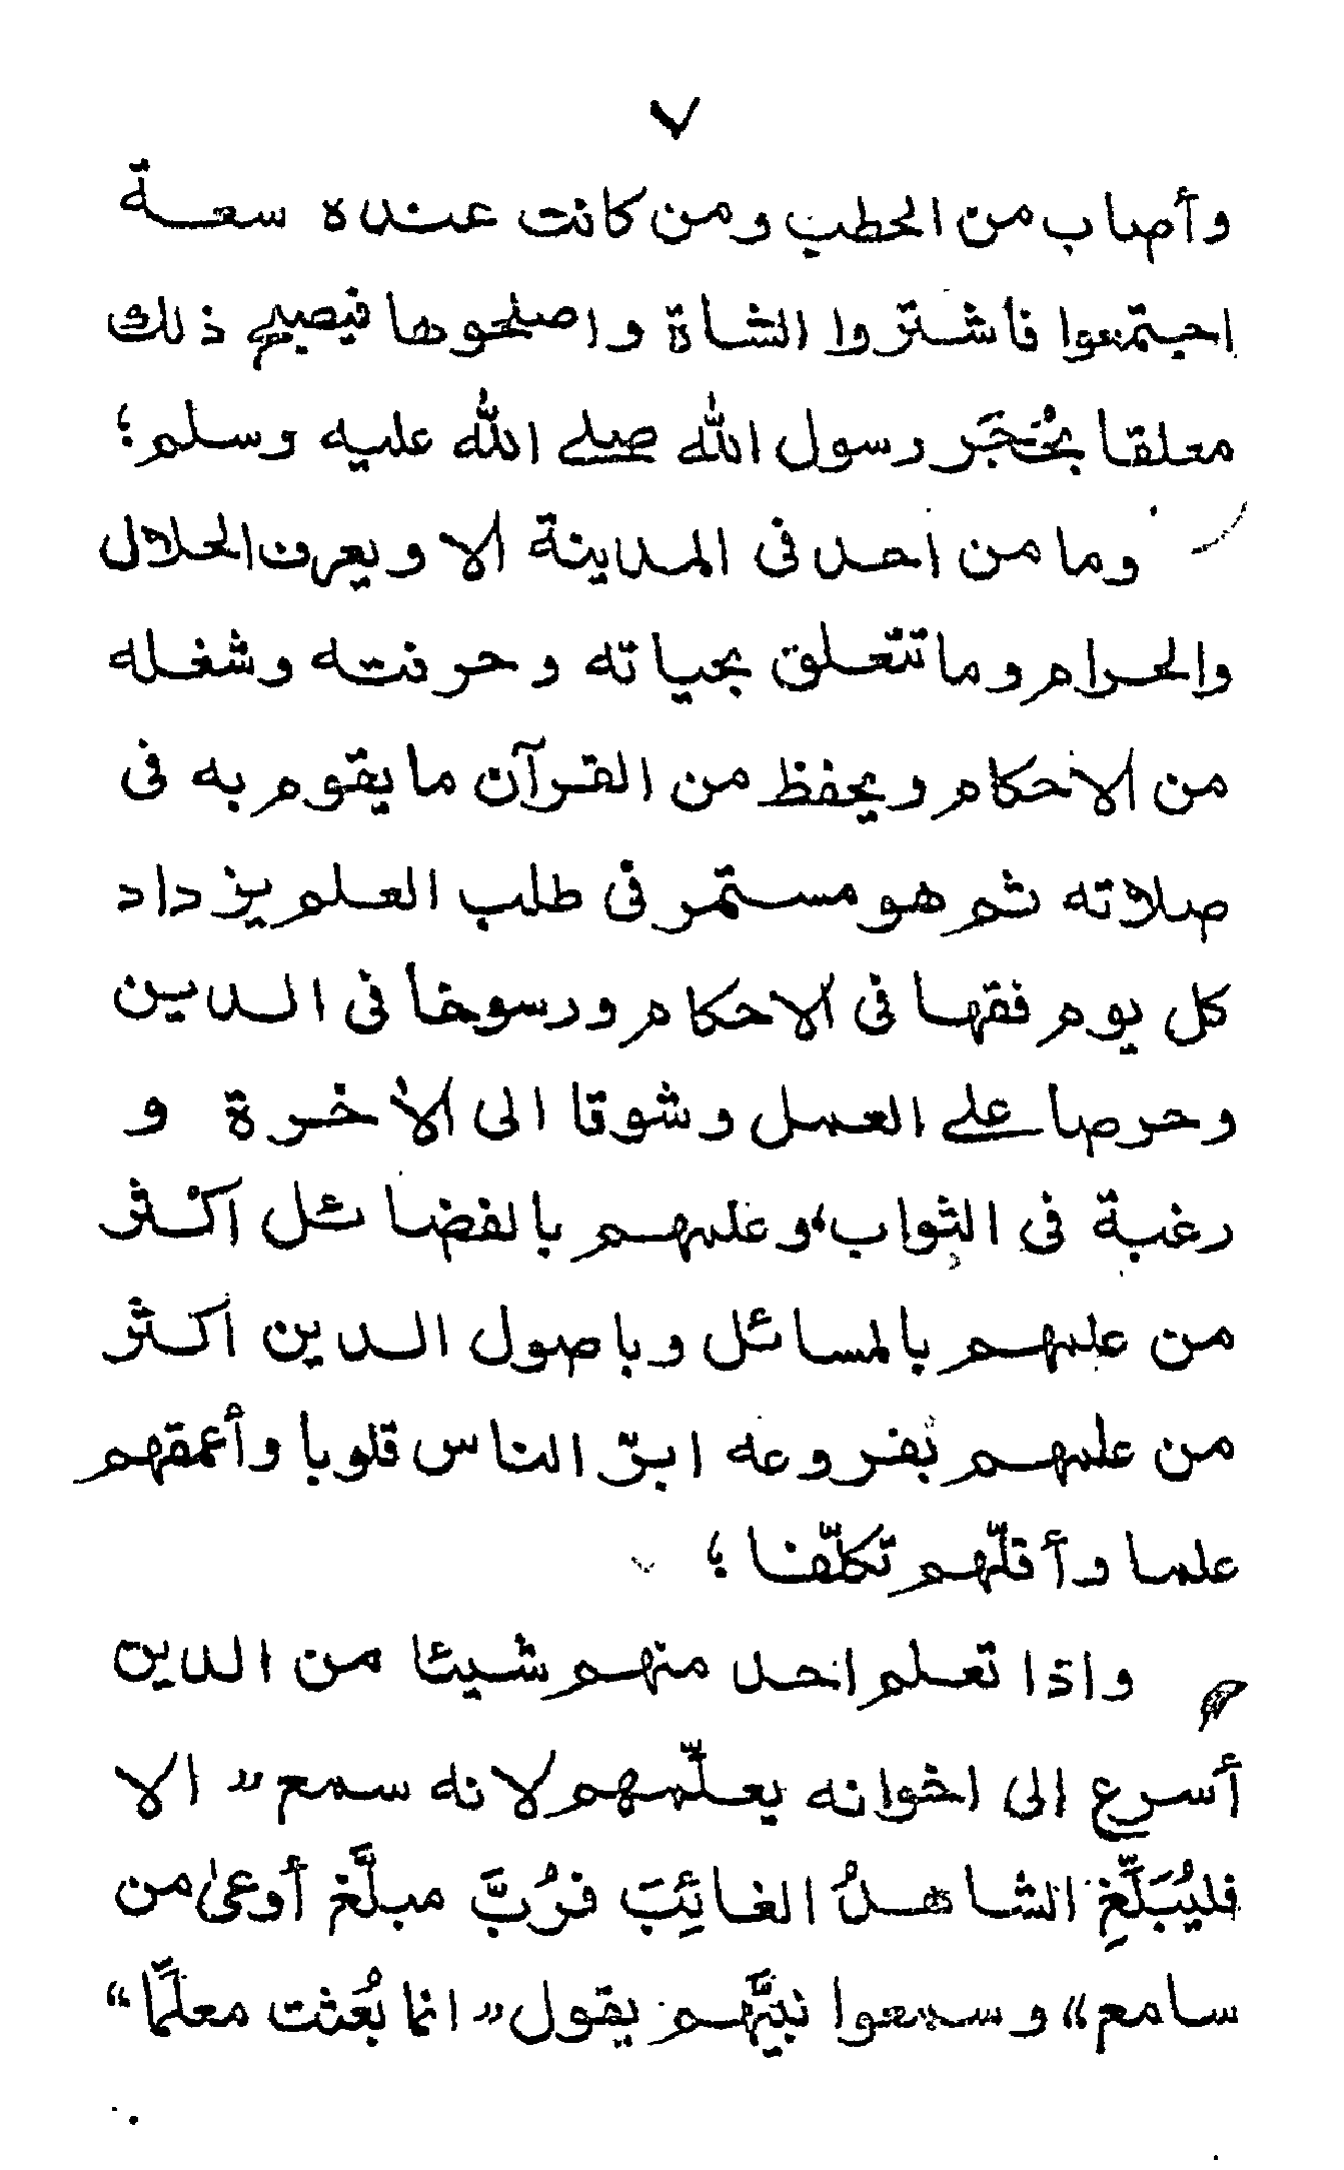 ٧
وأصاب من الحطب ومن كانت عنده سعة
اجتمعوا فاشتروا الشاة واصلحوها فيصبح ذلك
معلقا بحُجَر رسول الله صلى الله عليه وسلم؛
وما من احد فى المدينة الا ويعرف الحلال
والحرام وما تتعلق بحياته وحرفته وشغله
من الاحكام ويحفظ من القرآن ما يقوم به فى
صلاته ثم هو مستمر فى طلب العلم يزداد
كل يوم فقها فى الاحكام ورسوخا فى الدين
وحرصا على العمل وشوقا الى الأخرة و
رغبة فى الثواب، وعلمهم بالفضائل اكثر
من علمهم بالمسائل وباصول الدين اكثر
من علمهم بفروعه ابرّ الناس قلوبا وأعمقهم
علما وأقلّهم تكلّفا ؛
واذا تعلم احد منهم شيئا من الدين
أسرع الى اخوانه يعلّمهم لانه سمع ” الا
فليُبَلِّغِ الشاهدُ الغائِبَ فرُبَّ مبلَّغ أوعىٰ من
سامع “ وسمعوا نبيَّهم يقول ” انما بُعثت معلِّما “